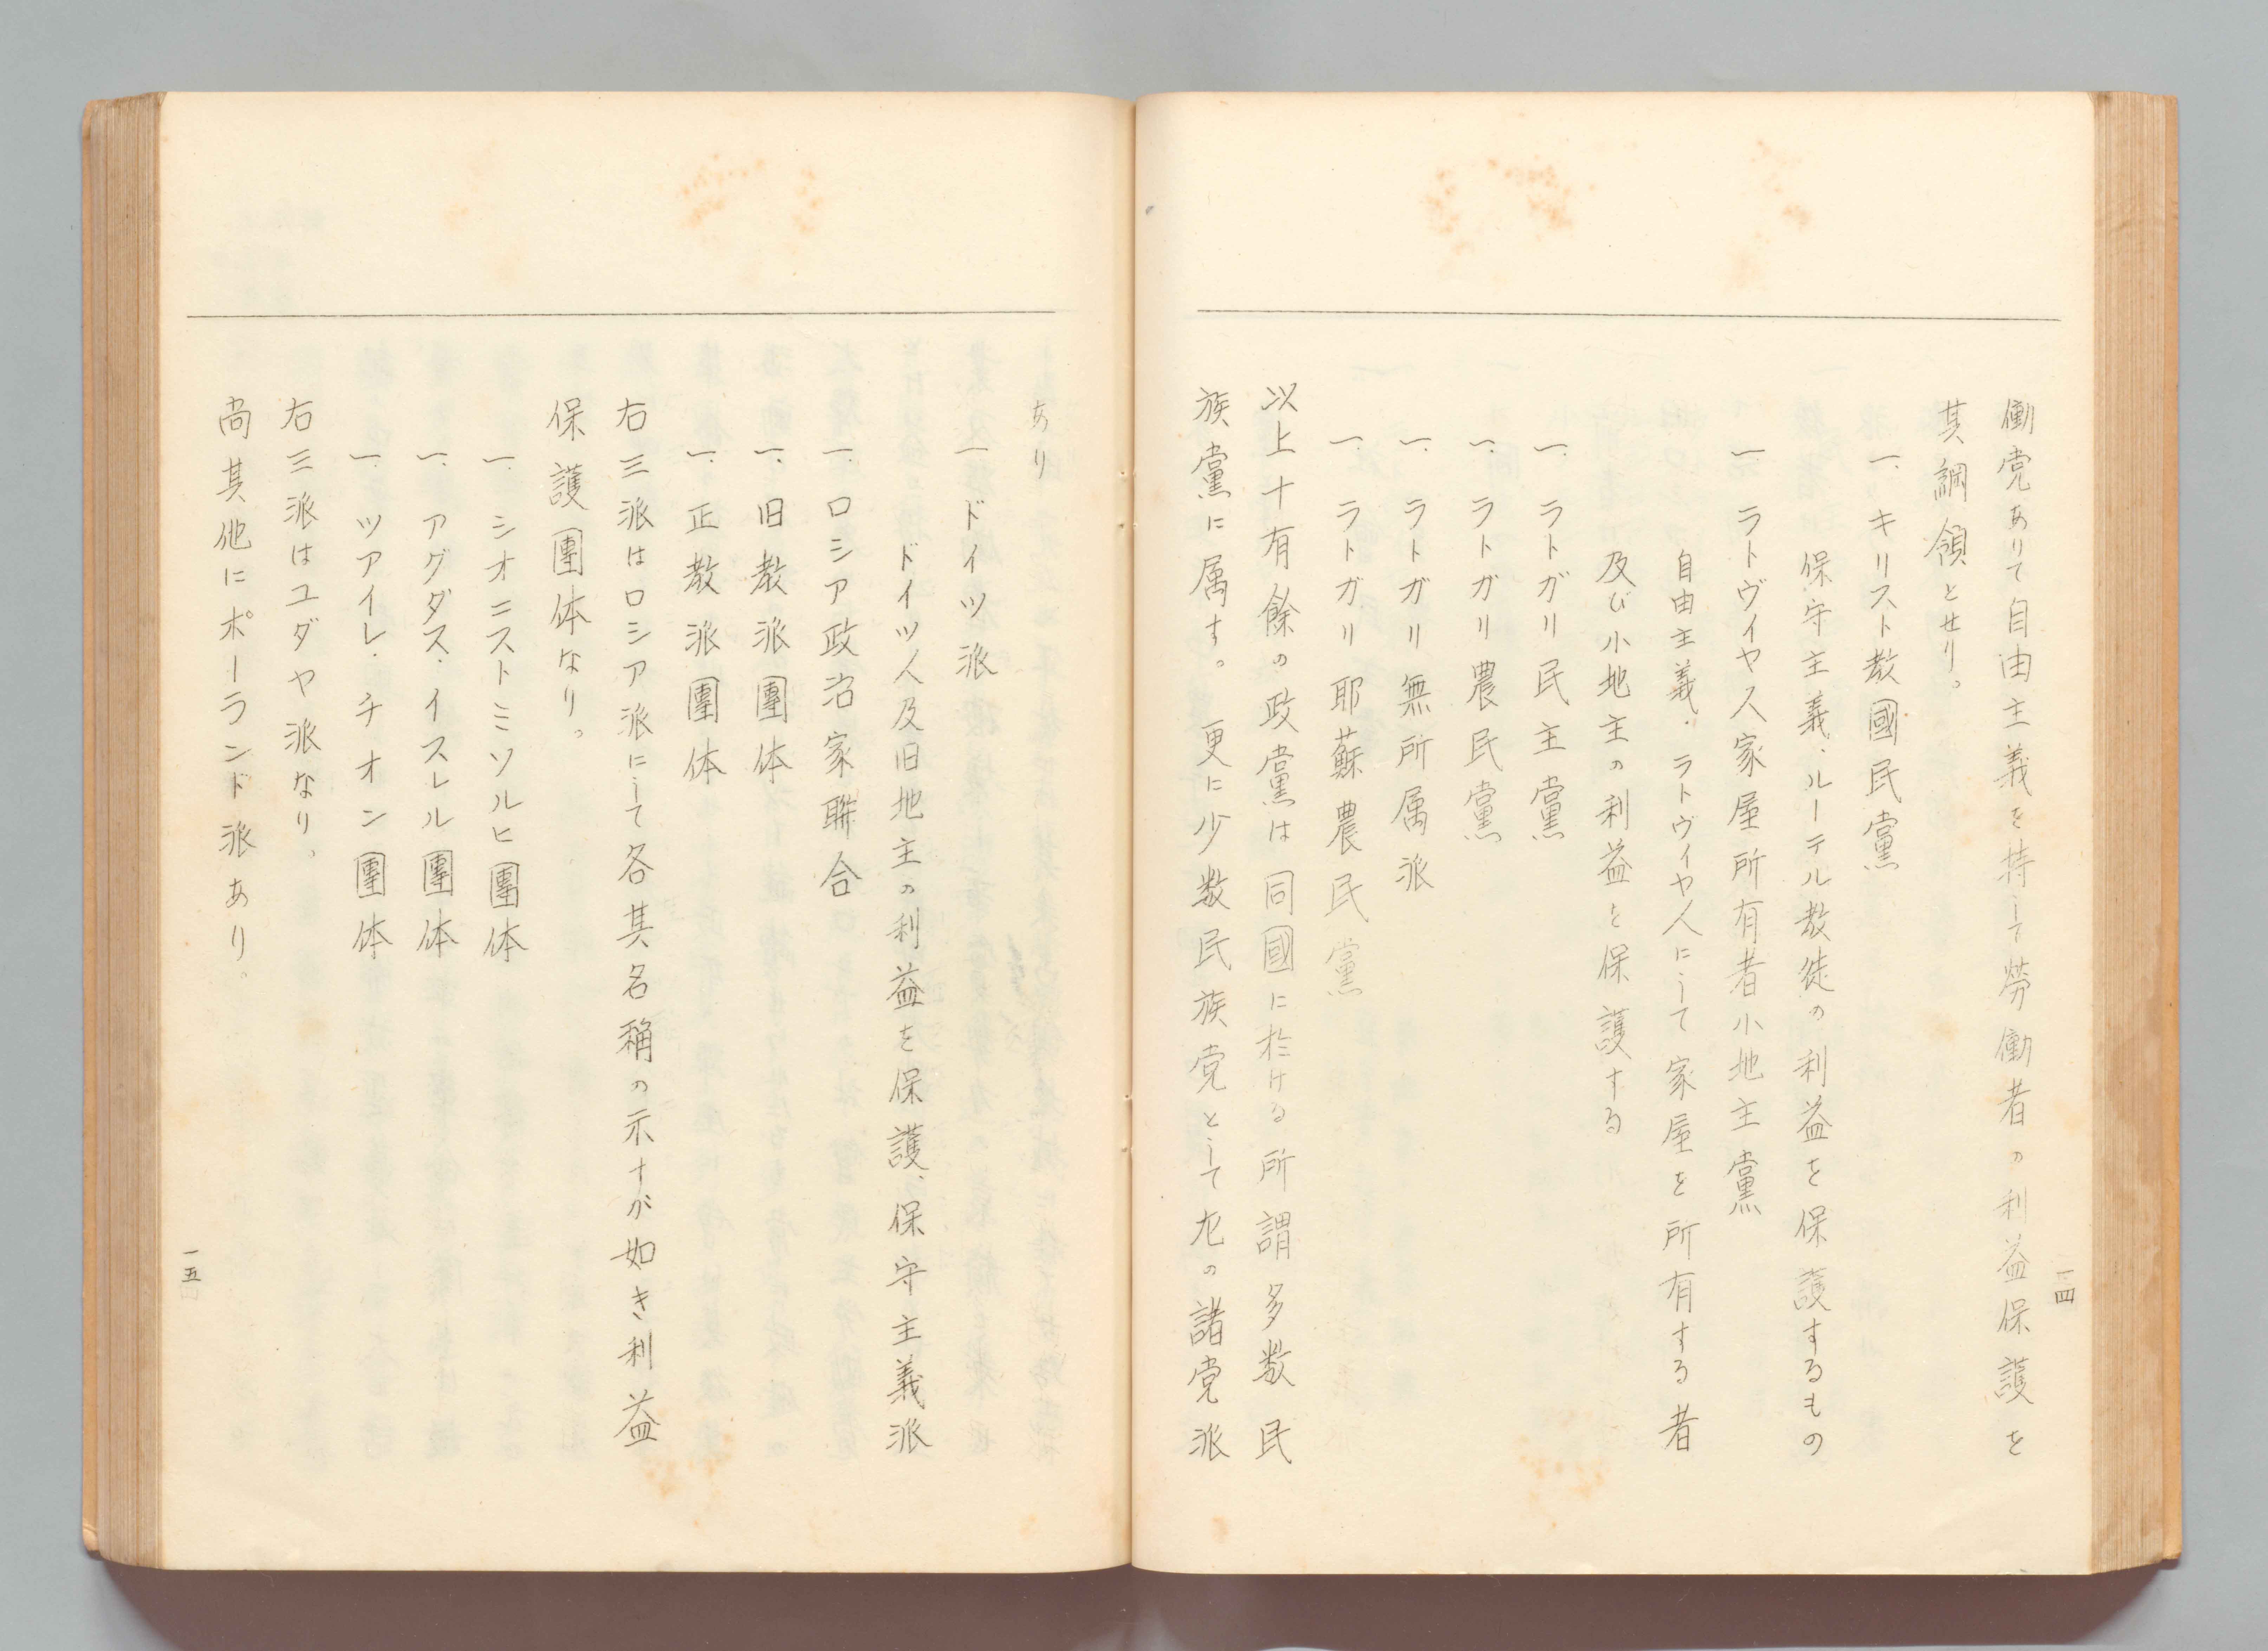 働党ありて自由主義を持して労働者の利益保護を
其綱領とせり。
一. キリスト教國民黨
保守主義.ルーテル教徒の利益を保護するもの
一. ラトヴィヤ人家屋所有者小地主黨
自由主義.ラトヴィヤ人にして家屋を所有する者
及び小地主の利益を保護する
一. ラトガリ民主黨
一. ラトガリ農民黨
一. ラトガリ無所属派
一. ラトガリ耶蘇農民黨
以上十有餘の政黨は同國に於ける所謂多数民
族黨に属す。更に少数民族党として尤の諸党派
一四
あり
一 ドイツ派
ドイツ人及旧地主の利益を保護、保守主義派
一. ロシア政治家聯合
一. 旧教派團体
一. 正教派團体
右三派はロシア派にして各其名稱の示すが如き利益
保護團体なり。
一. シオニストミソルヒ團体
一. アグダス.イスレル團体
一. ツアイレ.チオン團体
右三派はユダヤ派なり。
尚其他にポーランド派あり。
一五